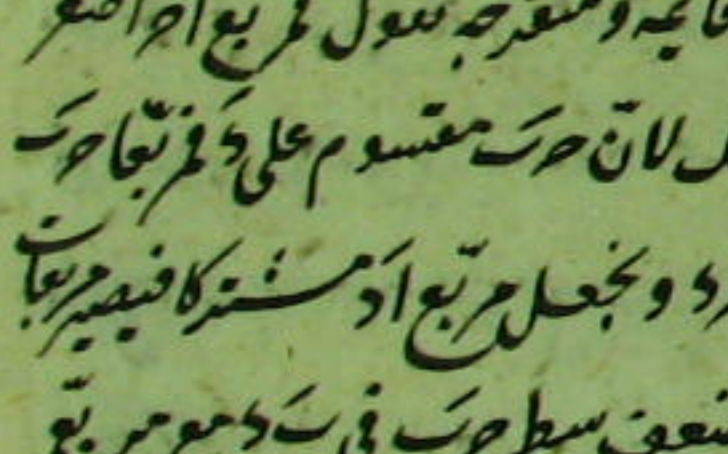 قائمه ومنفرجه نقول فمربع اح اصغر
لان حب مقسوم على د فمربعا حب
د ونجعل مربع اد مشتركا فيصير مربعات
ضعف سطح حب في ب د مع مربع